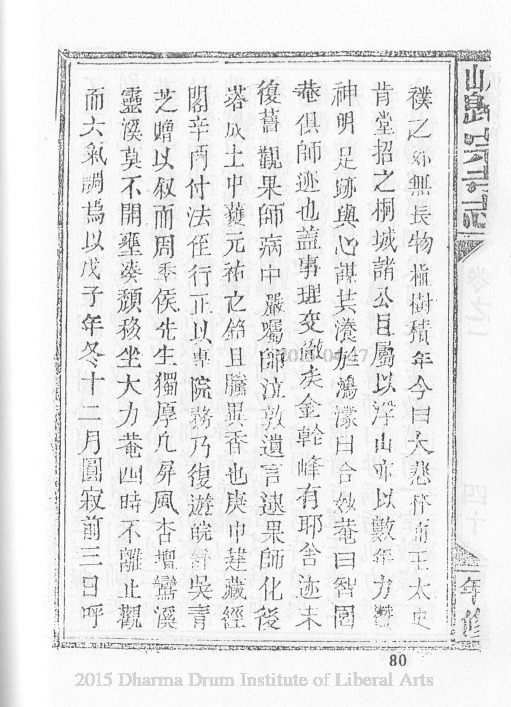 襆之外無長物植樹積年今曰大悲杯而王太史
肯堂招之桐城諸公且屬以浮山亦以數年力
神明足跡與心謀共瀁於鴻濛曰合妙菴曰智圓
菴俱師迹也蓋事理交徹矣金輪峰有耶舍迹未
復舊觀果師病中嚴囑師泣敦遺言逮果師化後
塔成土中獲元祐之銘且騰異香也庚申建藏經
閣辛酉付法侄行正以專院務乃復遊皖舒吳青
芝嶦以叙而周季侯先生獨厚凡屏風杏壇鸞溪
靈溪莫不開壅葵頹移坐大力菴四時不離止觀
而六氣調焉以戊子年冬十二月圓寂前三日呼
年修
80
2015 Dharma Drum Institute of Liberal Arts